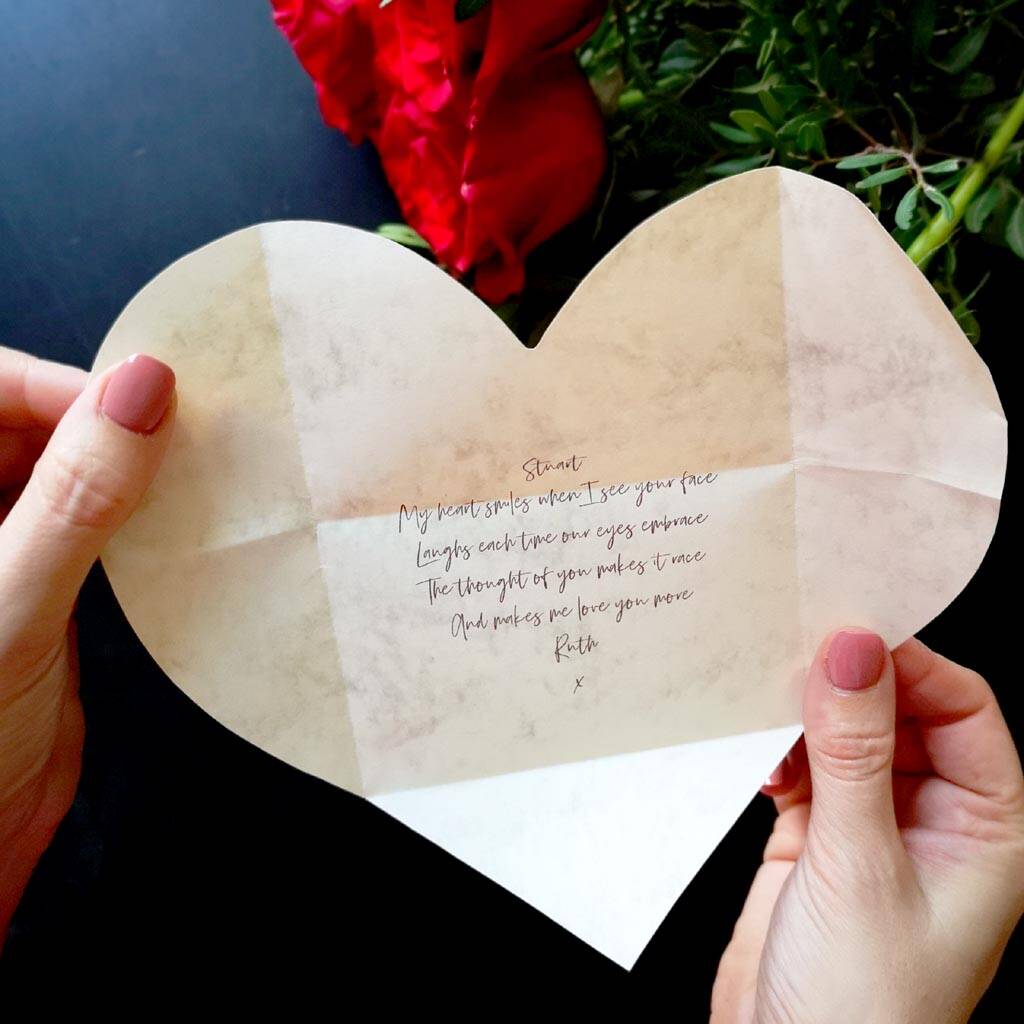 Stuart
My heart smiles when I see your face
Laughs each time our eyes embrace
The thought of you makes it race
And makes me love you more
Ruth
x